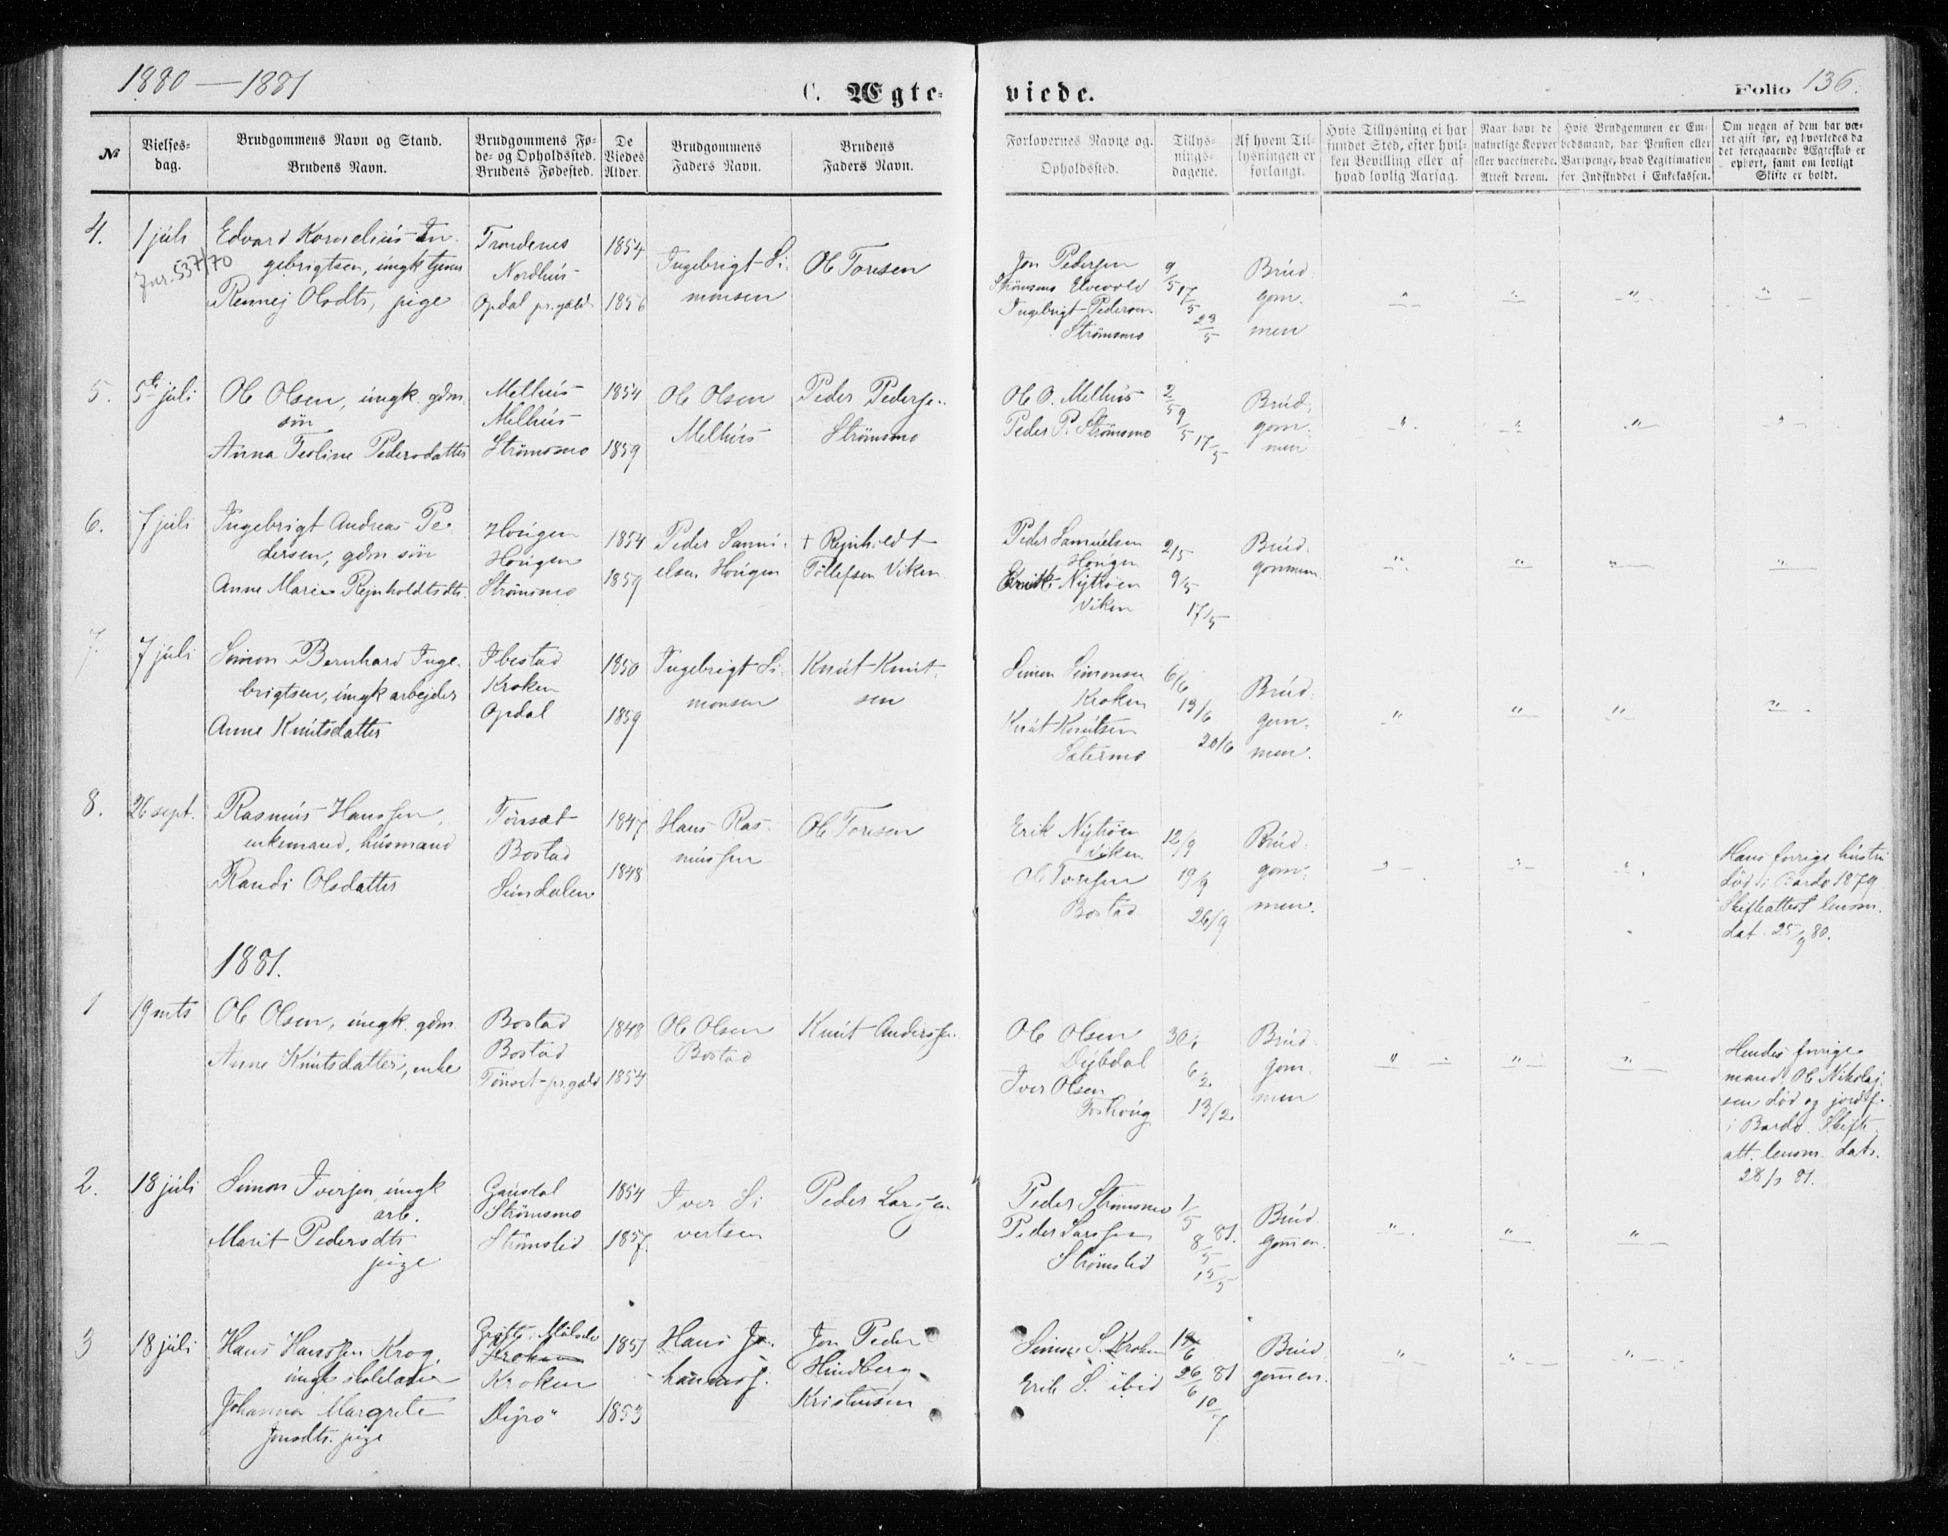 1880 — 1881
C. Ægte-
viede.
Folio 136.
№
Vielses-
dag.
Brudgommens Navn og Stand.
Brudens Navn.
Brudgommens Fø-
de- og Opholdssted.
Brudens Fødested.
De
Viedes
Alder.
Brudgommens
Faders Navn.
Brudens
Faders Navn.
Forlovernes Navne og
Opholdssted.
Tillys-
nings-
dagene.
Af hvem Til-
lysningen er
forlangt.
Hvis Tillysning ei har
fundet Sted, efter hvil-
ken Bevilling eller af
hvad lovlig Aarsag.
Naar havt de
naturlige Kopper
eller vaccinerede.
Attest derom.
Hvis Brudgommen er Em-
bedsmand, har Pension eller
Vartpenge, hvad Legitimation
for Indskuddet i Enkekassen.
Om nogen af dem har væ-
ret gift før, og hvorledes da
det foregaaende Ægteskab er
ophørt, samt om lovligt
Skifte er holdt.
4.
1 juli
Jnr. 537/70
Edvard Kornelius In-
gebrigtsen, ungk tjener
Rennej Olsdtr, pige
Trondenes
Nordhus
Opdal pr.gjæld
1854
1856
Ingebrigt Si-
monsen
Ole Toresen
Jon Pedersen
Strømsmo Elvevold
Ingebrigt Pedersen
Strømsmo
9/5
17/5
23/5
Brud-
gom-
men
5.
5te juli
Ole Olsen, ungk. gdm.
søn
Anna Teoline Pedersdatter
Melhus
Melhus
Strømsmo
1854
1859
Ole Olsen
Melhus
Peder Pederse-
Strømsmo
Ole O. Melhus
Peder P. Strømsmo
2/5
9/5
17/5
Brud-
gom-
men
6.
7 juli
Ingebrigt Andreas Pe-
dersen, gdm søn
Anne Marie Rejnholdtsdtr.
Hougen
Hougen
Strømsmo
1854
1859
Peder Samu-
elsen Hougen
+ Rejnholdt
Tollefsen Viken
Peder Samuelsen
Hougen
Erik Nytrøen
Viken
2/5
9/5
17/5
Brud-
gommen
7.
7 juli
Simon Bernhard Inge-
brigtsen, ungk arbejder
Anne Knutsdatter
Ibestad
Kroken
Opdal
1850
1859
Ingebrigt Si-
monsen
Knut Knut-
sen
Simon Simonsen
Kroken
Knut Knutsen
Sætermo
6/6
13/6
20/6
Brud-
gom-
men.
8.
26 sept.
Rasmus Hanssen,
enkemand, husmand
Randi Olsdatter
Tønsæt
Bostad
Sundalen
1847
1848
Hans Ras-
mussen
Ole Toresen
Erik Nytrøen
Viken
Ole Toresen
Bostad
12/9
19/9
26/9
Brud-
gom-
men.
Hans forrige hustru
død i Bardo 1879
Skifteattest lensm.
dat. 25/9 80.
1881.
1
19 mts
Ole Olsen, ungk. gdm.
Anne Knutsdatter, enke
Bostad
Bostad
Tønset pr.gjæld
1848
1854
Ole Olsen
Bostad
Knut Anderss-
Ole Olsen
Dybdal
Iver Olsen
Foshoug
30/1
6/2
13/2.
Brud-
gom-
men
Hendes forrige
mand Ole Nikolaj-
sen død og jordf.
i Bardo. Skifte-
att. lensm. dat.
28/1 81.
2.
18 juli
Simon Iversen, ungk
arb.
Marit Pedersdtr
pige
Gausdal
Strømsmo
Strømslid
1854
1857.
Iver Si-
vertsen
Peder Larssen
Peder Strømsmo
Peder Larssen
Strømslid
1/5
8/5 81.
15/5
Brud-
gommen.
3
18 juli
Hans Hanssen Krog,
ungk skolelærer
Johanna Margrete
Jonsdtr. pige
Målselv
Kroken
Kroken
Dyrø
1851
1853
Hans Jo-
hanness.
Jon Peder
Hindberg
Kristensen
Simon S. Kroken
Erik S. ibid
19/6
26/6 81
10/7
Brud-
gommen.